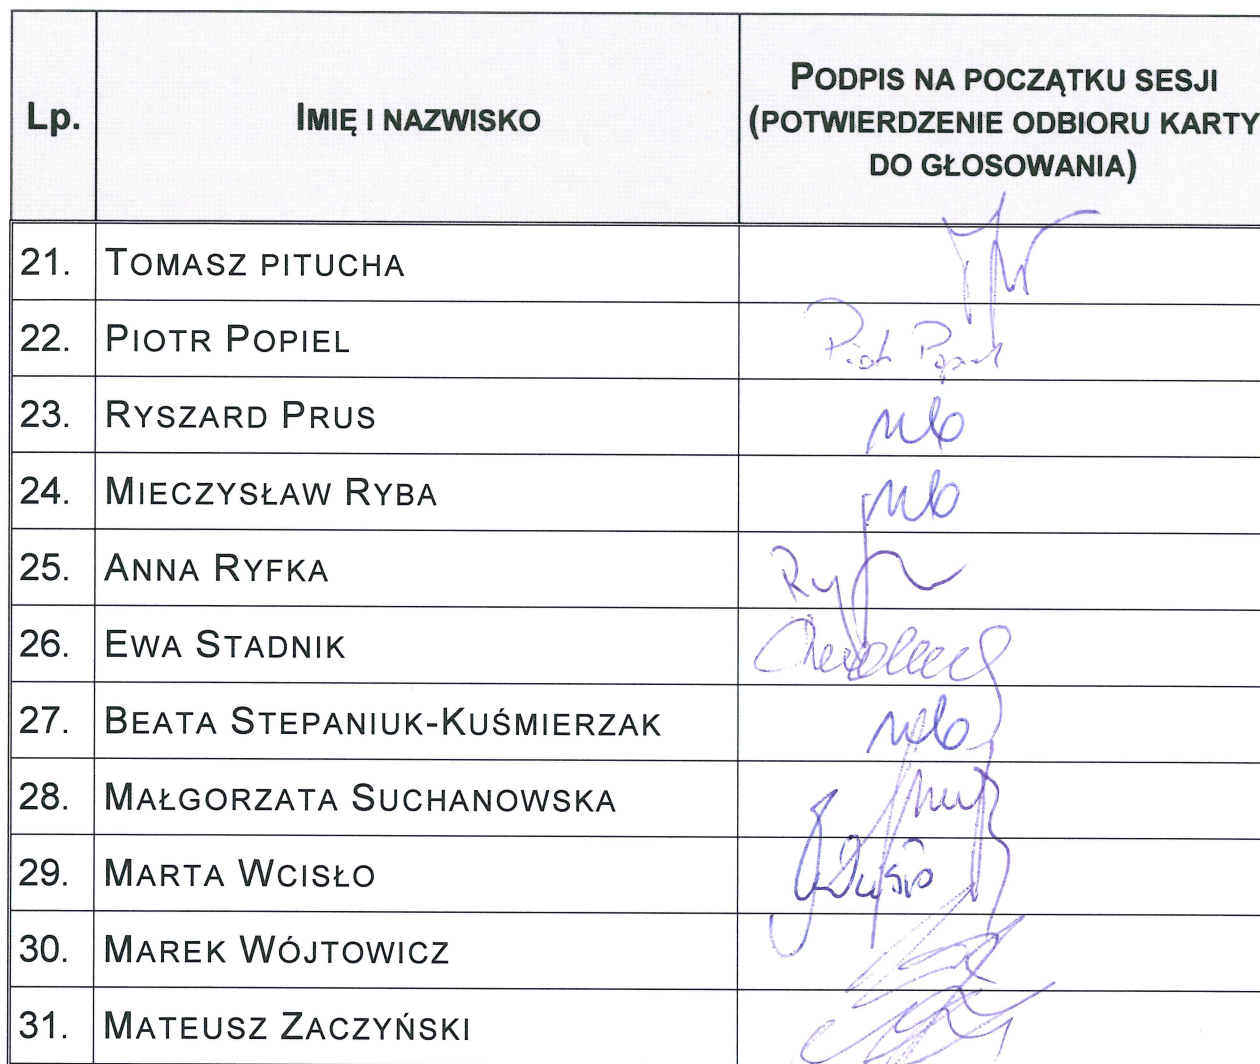 Lp. IMIĘ I NAZWISKO PODPIS NA POCZĄTKU SESJI
(POTWIERDZENIE ODBIORU KARTY
DO GŁOSOWANIA)
21. TOMASZ PITUCHA
22. PIOTR POPIEL Piotr Popiel
23. RYSZARD PRUS
24. MIECZYSŁAW RYBA
25. ANNA RYFKA
26. EWA STADNIK
27. BEATA STEPANIUK-KUŚMIERZAK
28. MAŁGORZATA SUCHANOWSKA
29. MARTA WCISŁO
30. MAREK WÓJTOWICZ
31. MATEUSZ ZACZYŃSKI